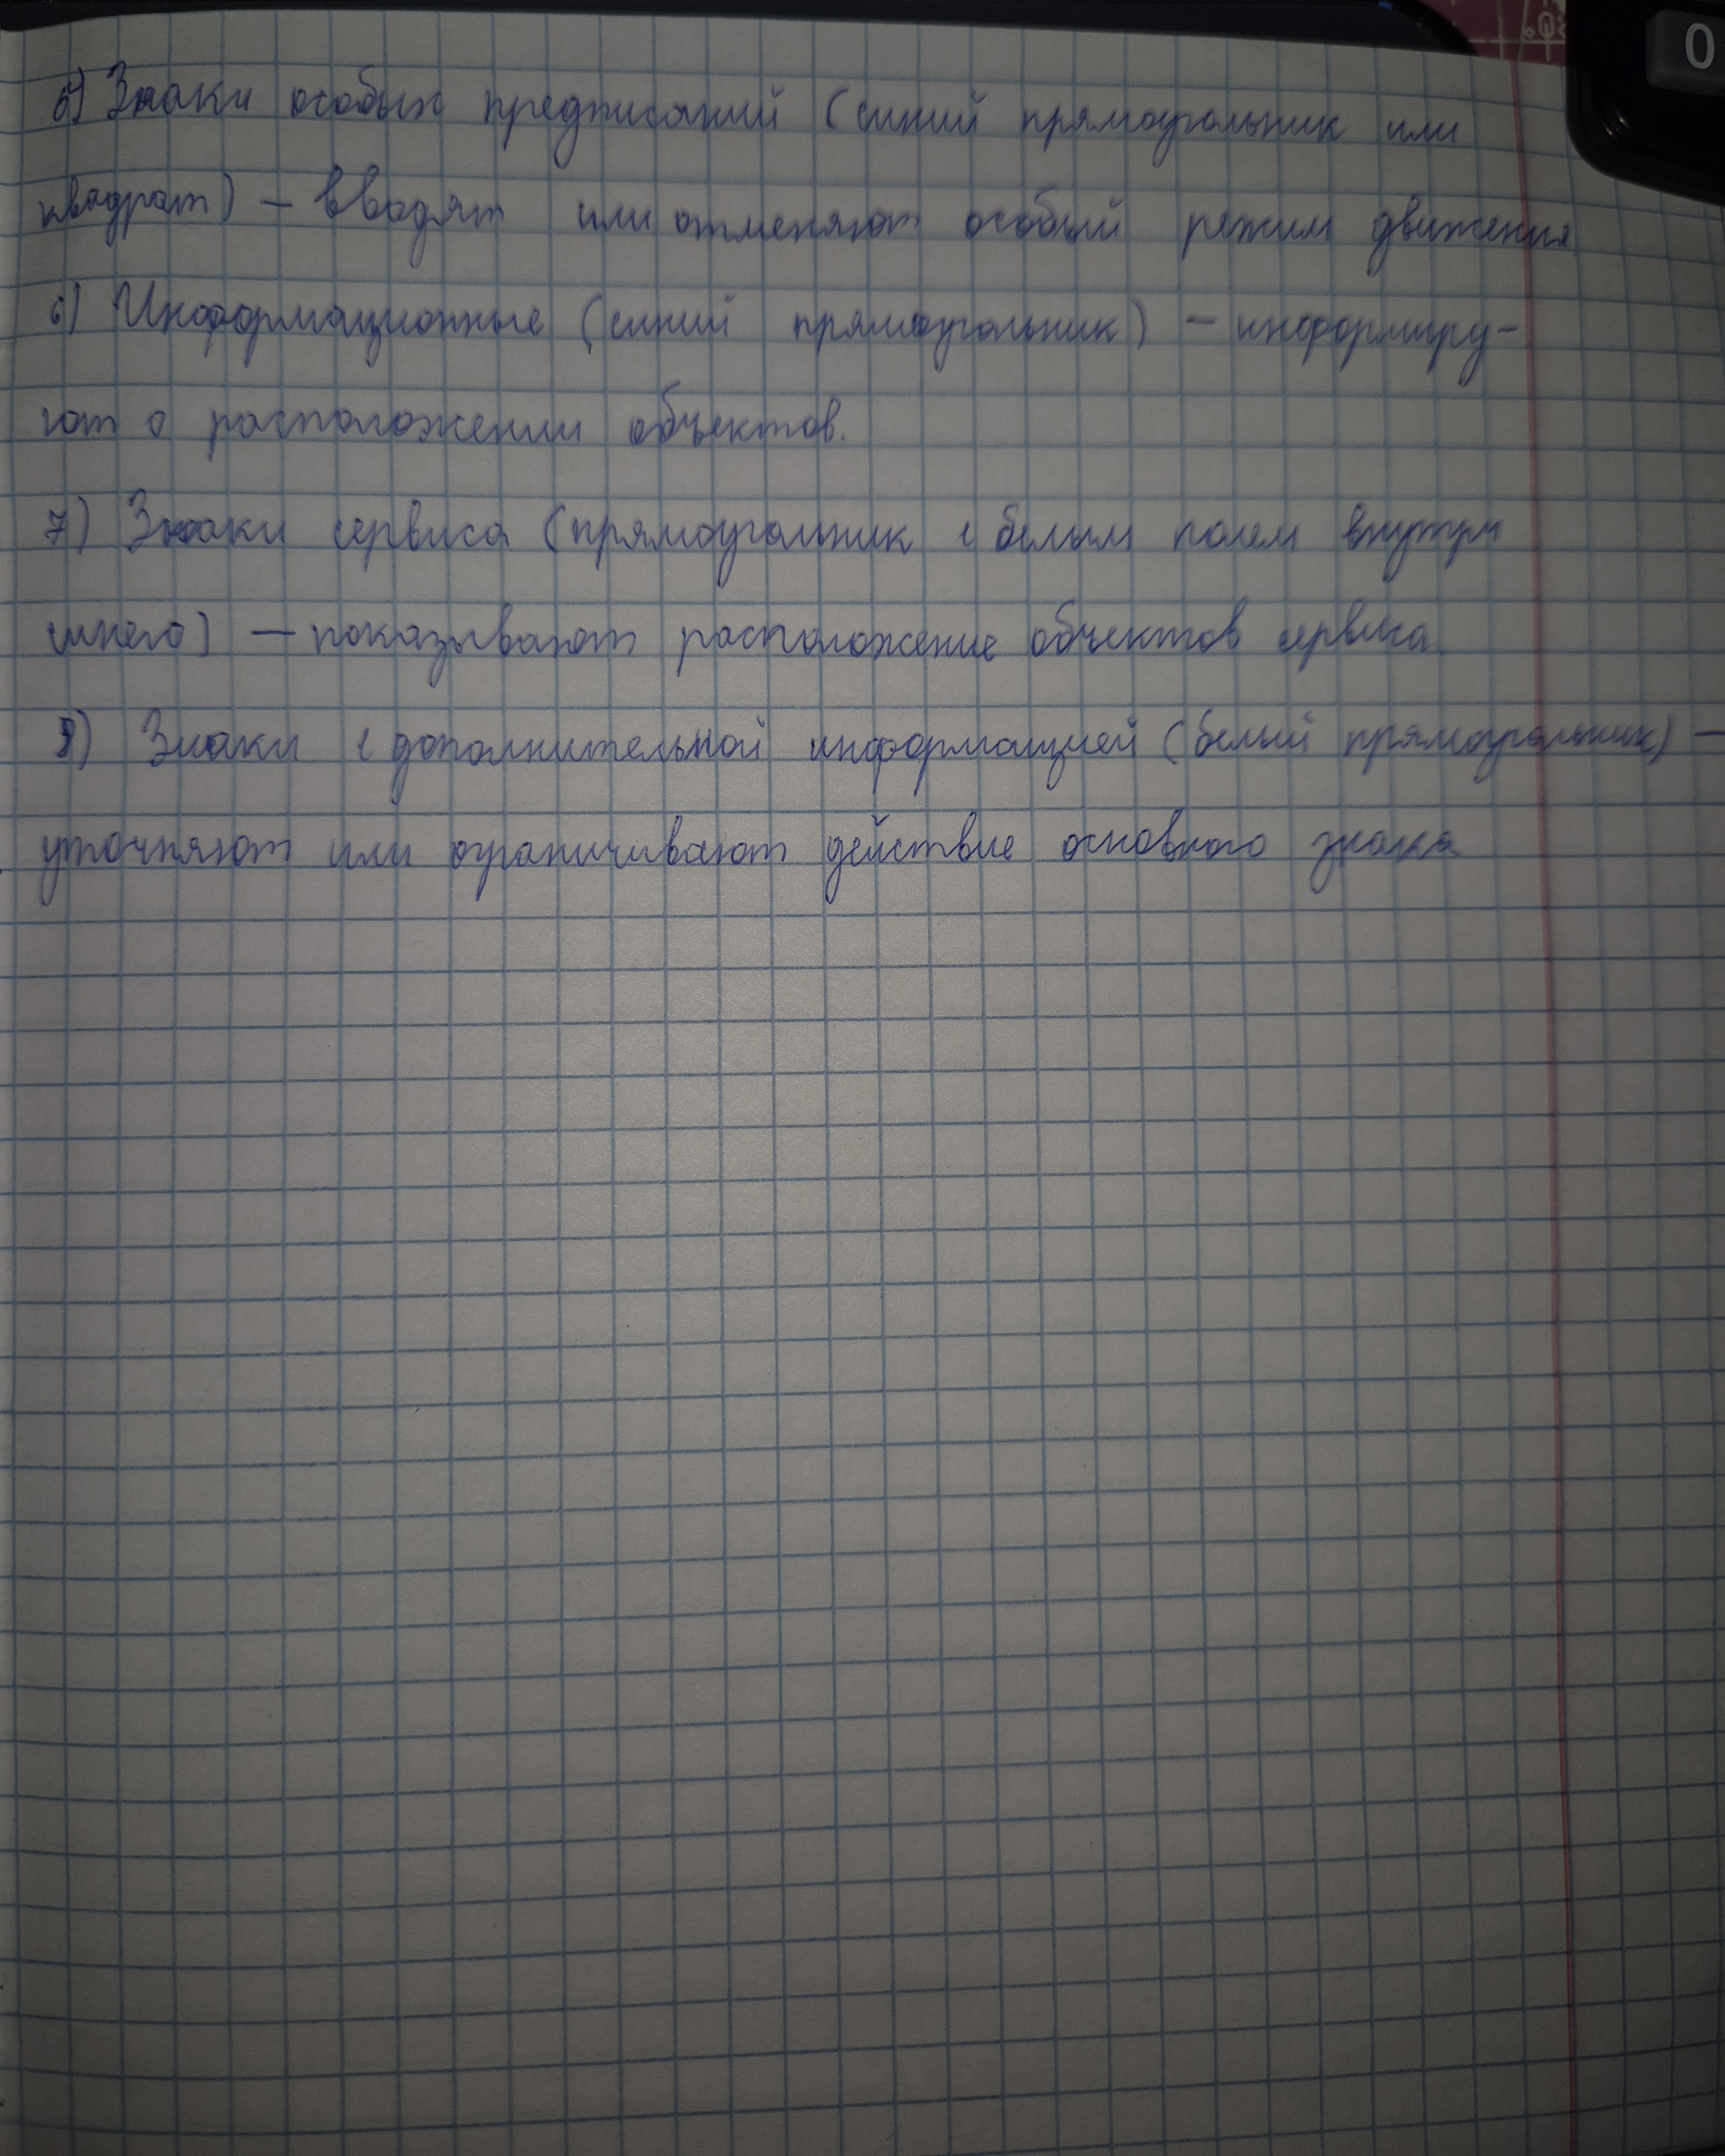 5) Знаки особых предписаний (синий прямоугольник или
квадрат) – вводят или отменяют особый режим движения
6) Информационные (синий прямоугольник) – информиру-
ют о расположении объектов.
7) Знаки сервиса (прямоугольник с белым полем внутри
синего) – показывают расположение объектов сервиса.
8) Знаки с дополнительной информацией (белый прямоугольник) –
уточняют или ограничивают действие основного знака
0